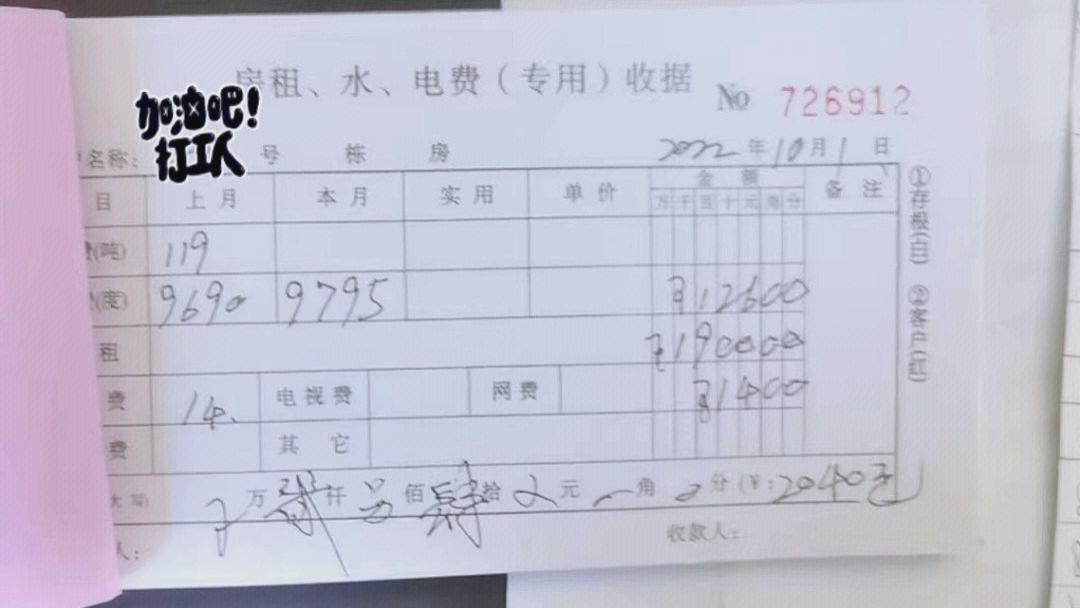 房租、水、电费(专用)收据 No 726912
加油吧!
打工人
名称: 号 栋 房 2022年10月1日
目 上月 本月 实用 单价 金额 备注
万千百十元角分
(吨) 119
(度) 9690 9795 ¥12600
租 ¥190000
费 14. 电视费 网费 ¥1400
费 其它
万 贰仟 另佰 肆拾 元 角 分(¥:2040元
人: 收款人:
①存根(白) ②客户(红)